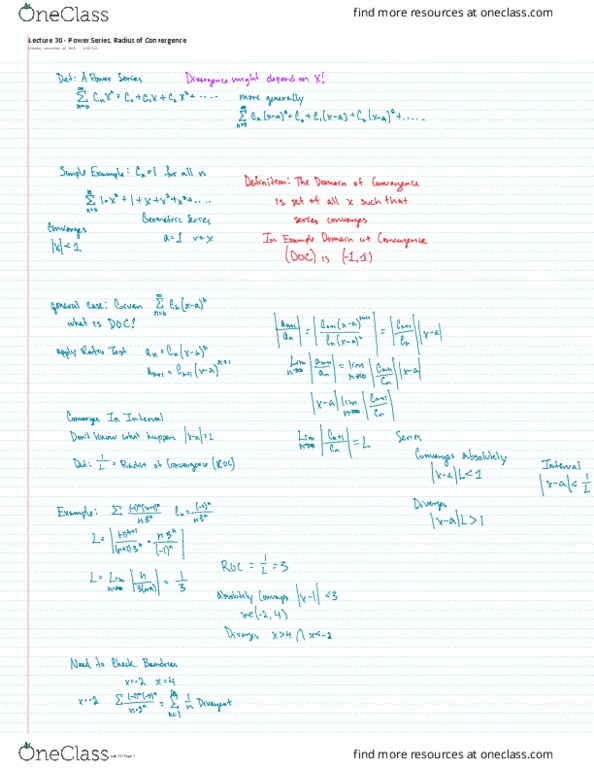 OneClass
find more resources at oneclass.com
Lecture 30 - Power Series, Radius of Convergence
Def: A Power Series
Divergence might depend on x!
∑ₙ₌₀^∞ Cₙxⁿ = C₀ + C₁x + C₂x² + .....
more generally
∑ₙ₌₀^∞ Cₙ(x-a)ⁿ = C₀ + C₁(x-a) + C₂(x-a)² + .....
Simple Example: Cₙ=1 for all n
∑ₙ₌₀^∞ 1·xⁿ = 1 + x + x² + x³ + ....
Geometric Series
a=1 r=x
Converges
|x|<1
Definition: The Domain of Convergence
is set of all x such that
series converges
In Example Domain of Convergence
(DOC) is (-1,1)
general case: Given ∑ₙ₌₀^∞ Cₙ(x-a)ⁿ
what is DOC?
apply Ratio Test aₙ = Cₙ(x-a)ⁿ
aₙ₊₁ = Cₙ₊₁(x-a)ⁿ⁺¹
|aₙ₊₁/aₙ| = |Cₙ₊₁(x-a)ⁿ⁺¹/Cₙ(x-a)ⁿ| = |Cₙ₊₁/Cₙ||x-a|
Lim n→∞ |aₙ₊₁/aₙ| = lim n→∞ |Cₙ₊₁/Cₙ||x-a|
|x-a| lim n→∞ |Cₙ₊₁/Cₙ|
Lim n→∞ |Cₙ₊₁/Cₙ| = L
Series
Converges Absolutely
|x-a|L<1
Diverges
|x-a|L>1
Interval
|x-a|<1/L
Converges In Interval
Don't know what happens |x-a|=1
Def: 1/L = Radius of Convergence (ROC)
Example: ∑ (-1)ⁿ(x-1)ⁿ/n3ⁿ Cₙ = (-1)ⁿ/n3ⁿ
L = |(-1)ⁿ⁺¹/(n+1)3ⁿ · n3ⁿ/(-1)ⁿ|
L = Lim n→∞ |n/3(n+1)| = 1/3
ROC = 1/L = 3
Absolutely Converges |x-1|<3
x∈(-2,4)
Diverges x>4 ∩ x<-2
Need to Check Boundries
x=-2 x=4
x=-2 ∑ (-1)ⁿ(-3)ⁿ/n·3ⁿ = ∑ₙ₌₁^∞ 1/n Divergent
OneClass
Page 1
find more resources at oneclass.com